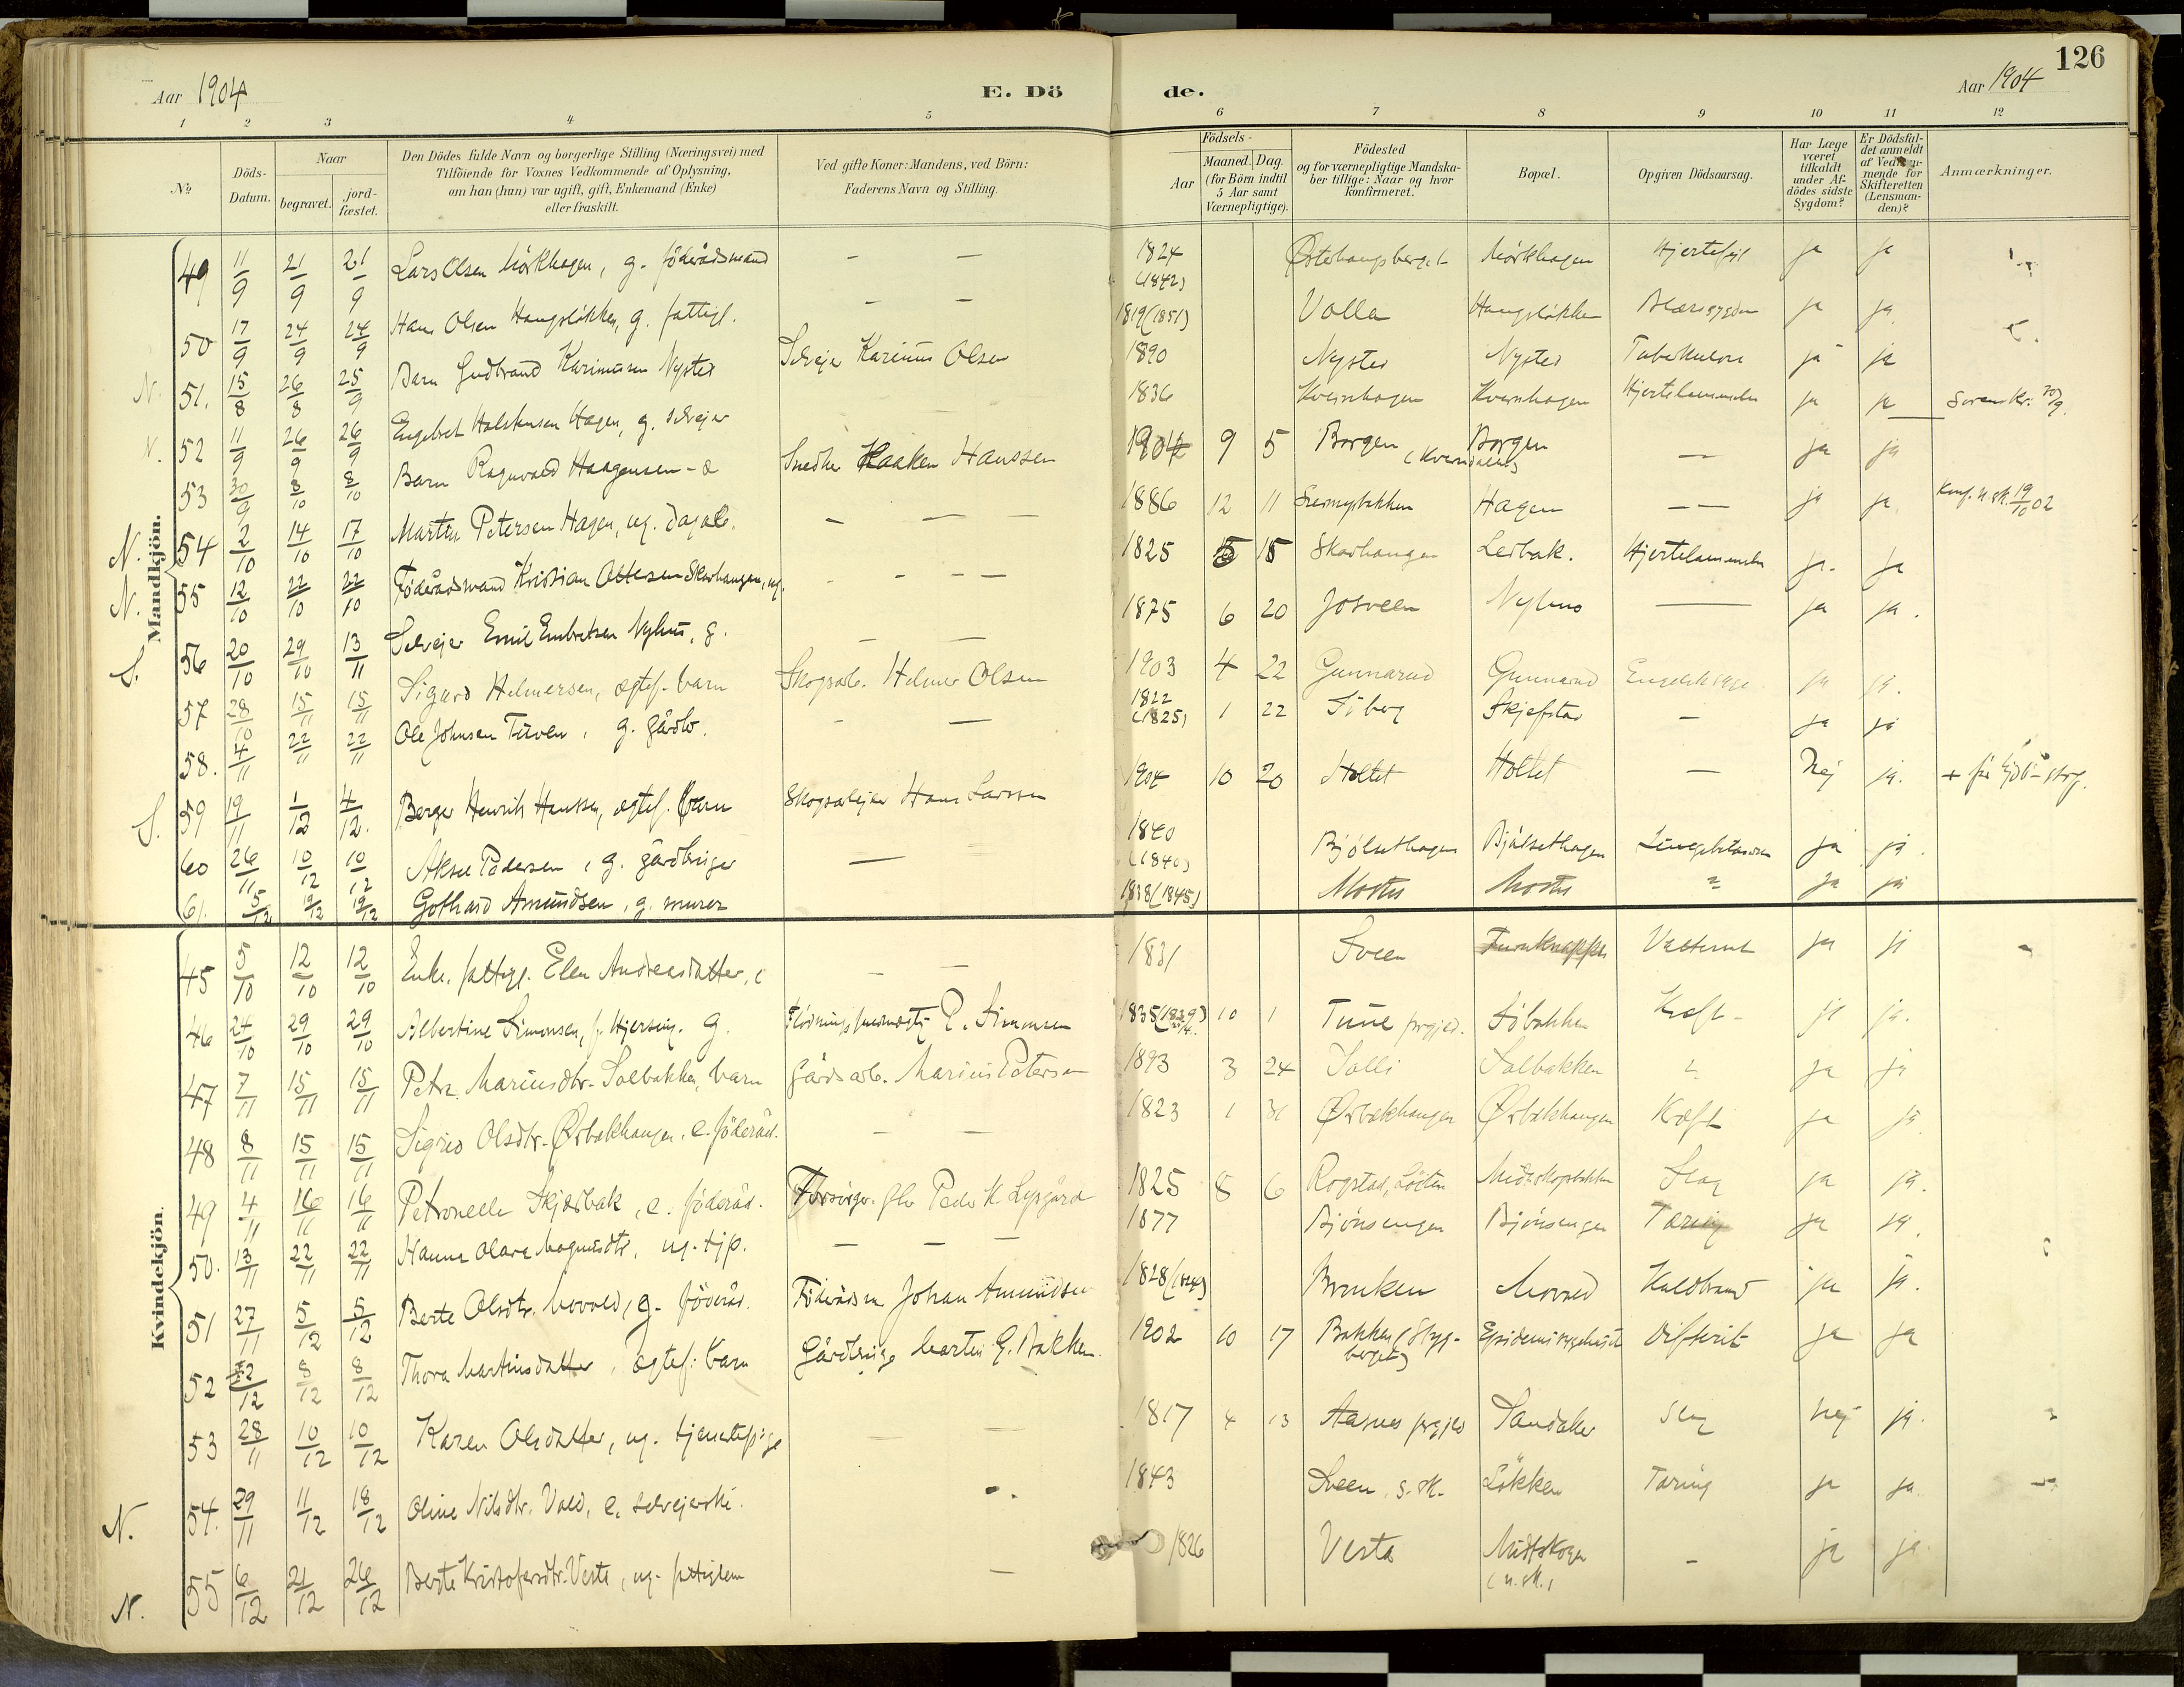 126
Aar 1904
E. Dö
de.
Aar 1904
1 2 3 4 5 6 7 8 9 10 11 12
№
Döds-Datum.
Naar
begravet.
jord-fæstet.
Den Dödes fulde Navn og borgerlige Stilling (Næringsvei) med
Tilföiende for Voxnes Vedkommende af Oplysning,
om han (hun) var ugift, gift, Enkemand (Enke)
eller fraskilt.
Ved gifte Koner: Mandens, ved Börn:
Faderens Navn og Stilling.
Födsels-
Aar
Maaned.
Dag.
(for Börn indtil
5 Aar samt
Værnepligtige).
Födested
og for værnepligtige Mandska-
ber tillige: Naar og hvor
konfirmeret.
Bopæl.
Opgiven Dödsaarsag.
Har Læge
været
tilkaldt
under Af-
dödes sidste
Sygdom?
Er Dödsfal-
det anmeldt
af Vedkom-
mende for
Skifteretten
(Lensman-
den)?
Anmærkninger.
Mandkjön.
49 11/9 21/9 21/9 Lars Olsen Mörkhagen, g. föderådsmand — — 1824 (1842) Østerhaugsberget Mörkhagen Hjertefejl ja ja
50 17/9 24/9 24/9 Hans Olsen Haugsløkken, g. fattigl. — — 1819 (1851) Volla Haugsløkken Blæresygdom ja ja
N. 51. 15/8 26/8 25/9 Barn Gudbrand Karinusen Nysted Selvejer Karinus Olsen 1890 Nysted Nysted Tuberkulose ja ja
N. 52 11/9 26/9 26/9 Engebret Halstensen Hagen, g. selvejer 1836 Kvernhagen Kvernhagen Hjertelammelse ja ja Soren kr. 20/9.
53 30/9 8/10 8/10 Barn Ragnvald Haagensen - æ Snedker Haaken Hanssen 1904 9 5 Borgen Borgen (Kverndalen) — ja ja
N. 54 2/10 14/10 17/10 Martin Petersen Hagen, ug. dagarb. — — — 1886 12 11 Hagen — — ja ja Konf. n. sk. 19/10 02
N. 55 12/10 22/10 22/10 Föderådsmand Kristian Ottersen Skarhaugen, ug. - - — — 1825 5 15 Skarhaugen Ledbak. Hjertelammelse ja. ja
S. 56 20/10 29/10 13/11 Selvejer Emil Embretsen Nyhus, g. — — 1875 6 20 Josveen Nyhus — ja ja.
57 28/10 15/11 15/11 Sigurd Helmersen, ægtef. barn Skogsarb. Helmer Olsen 1903 4 22 Gunnarud Gunnarud Engelsk syge ja ja.
58. 4/11 22/11 22/11 Ole Johnsen Tuven, g. gårdbr. - — 1822 (1825) 1 22 Siberg Skjefstad — ja ja
S. 59 19/11 1/12 4/12. Berger Henrik Hanssen, ægtef. barn Skogsarbejder Hans Larssen 1904 10 20 Holtet Holtet — Nej ja.
60 26/11 10/12 10/12 Aksel Pedersen, g. gårdbruger — 1840 (1840) Bjølsethagen Bjølsethagen Lungebetændelse ja ja.
61. 5/12 12/12 12/12 Gothard Amundsen, g. murer 1838 (1845) Mostu Mostu " ja ja
Kvindekjön.
45 5/10 12/10 12/10 Enke, fattigl. Elen Andreasdatter, e — — 1831 Sveen Furuknappen Vattersot ja ja
46 24/10 29/10 29/10 Albertine Simensen, f. Hjersing. g. E. Simensen 1835 (1839) 10 1 Tune prgjld. Söbakken Kræft - ja ja.
47 7/11 15/11 15/11 Petra Mariusdtr. Solbakken, barn Gårdsarb. Marius Petersen 1893 3 24 Solli Solbakken " ja ja
48 8/11 15/11 15/11 Sigrid Olsdtr. Ørbækhaugen, e. föderåd. — — 1823 1 31 Ørbækhaugen Ørbækhaugen Kræft ja ja
49 4/11 16/11 16/11 Petronelle Skjærbæk, e. föderåd. Forsörger. Peder K. Lysgård 1825 8 6 Rogstad, Löiten Slag ja ja.
50. 13/11 22/11 22/11 Hanna Olava Magnusdtr, ug. tjp. — — — 1877 Bjönsengen Bjönsengen Tæring ja ja.
51 27/11 5/12 5/12 Berte Olsdtr. Movold, g. föderåd. Föderådsm Johan Amundsen 1828 Brenken Movold Koldbrand ja ja.
52 2/12 8/12 8/12 Thora Martinsdatter, ægtef. barn Gårdbruger Martin G. Bakken. 1902 10 17 Bakken (Skyg-berget) Epidemisygehuset Difterit ja ja
53 28/11 10/12 10/12 Karen Olsdatter, ug. tjenestepige — — 1817 4 13 Aasnes prgjld Sandaker Slag Nej ja.
N. 54. 29/11 11/12 18/12 Oline Nilsdtr. Vold, e. selvejerske. 1843 Sveen, s. sk. Løkken Tæring ja ja.
N. 55 6/12 21/12 26/12 Berte Kristofersdtr. Vesta, ug. fattiglem — 1826 Vesta Midtskogen (n. sk.) - ja ja